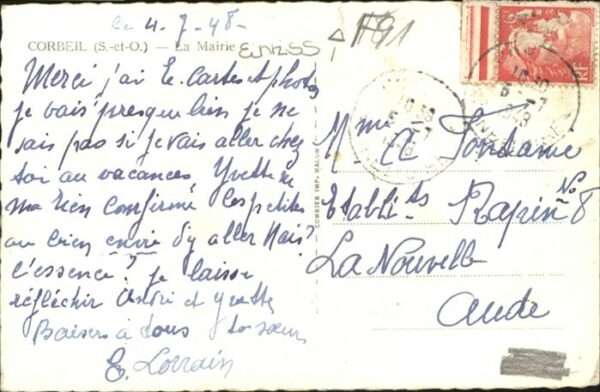 ce 4-7-48-
CORBEIL (S.-et-O.) — La Mairie
Merci j'ai Eu Cartes et photos
je vais presque bien je ne
sais pas si je vais aller chez
toi au vacances Yvette ne
ma rien confirmé les petites
ont bien envie d'y aller Mais?
l'essence? je laisse
réfléchir André et Yvette
Baisers à tous ta sœur
E. Lorrain
Mme A Fontanie
Etablits Rapin No 8
La Nouvelle
Aude